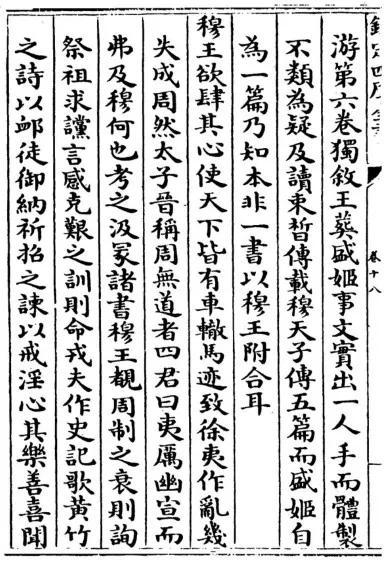 欽定四庫全書
卷十八
游第六卷獨敘王葬盛姬事文實出一人手而體製
不類為疑及讀束晳傳載穆天子傳五篇而盛姬自
為一篇乃知本非一書以穆王附合耳
穆王欲肆其心使天下皆有車轍馬迹致徐夷作亂幾
失成周然太子晉稱周無道者四君曰夷厲幽宣而
弗及穆何也考之汲冢諸書穆王覩周制之衰則詢
祭祖求讜言感克艱之訓則命戎夫作史記歌黃竹
之詩以卹徒御納祈招之諫以戒淫心其樂善喜聞